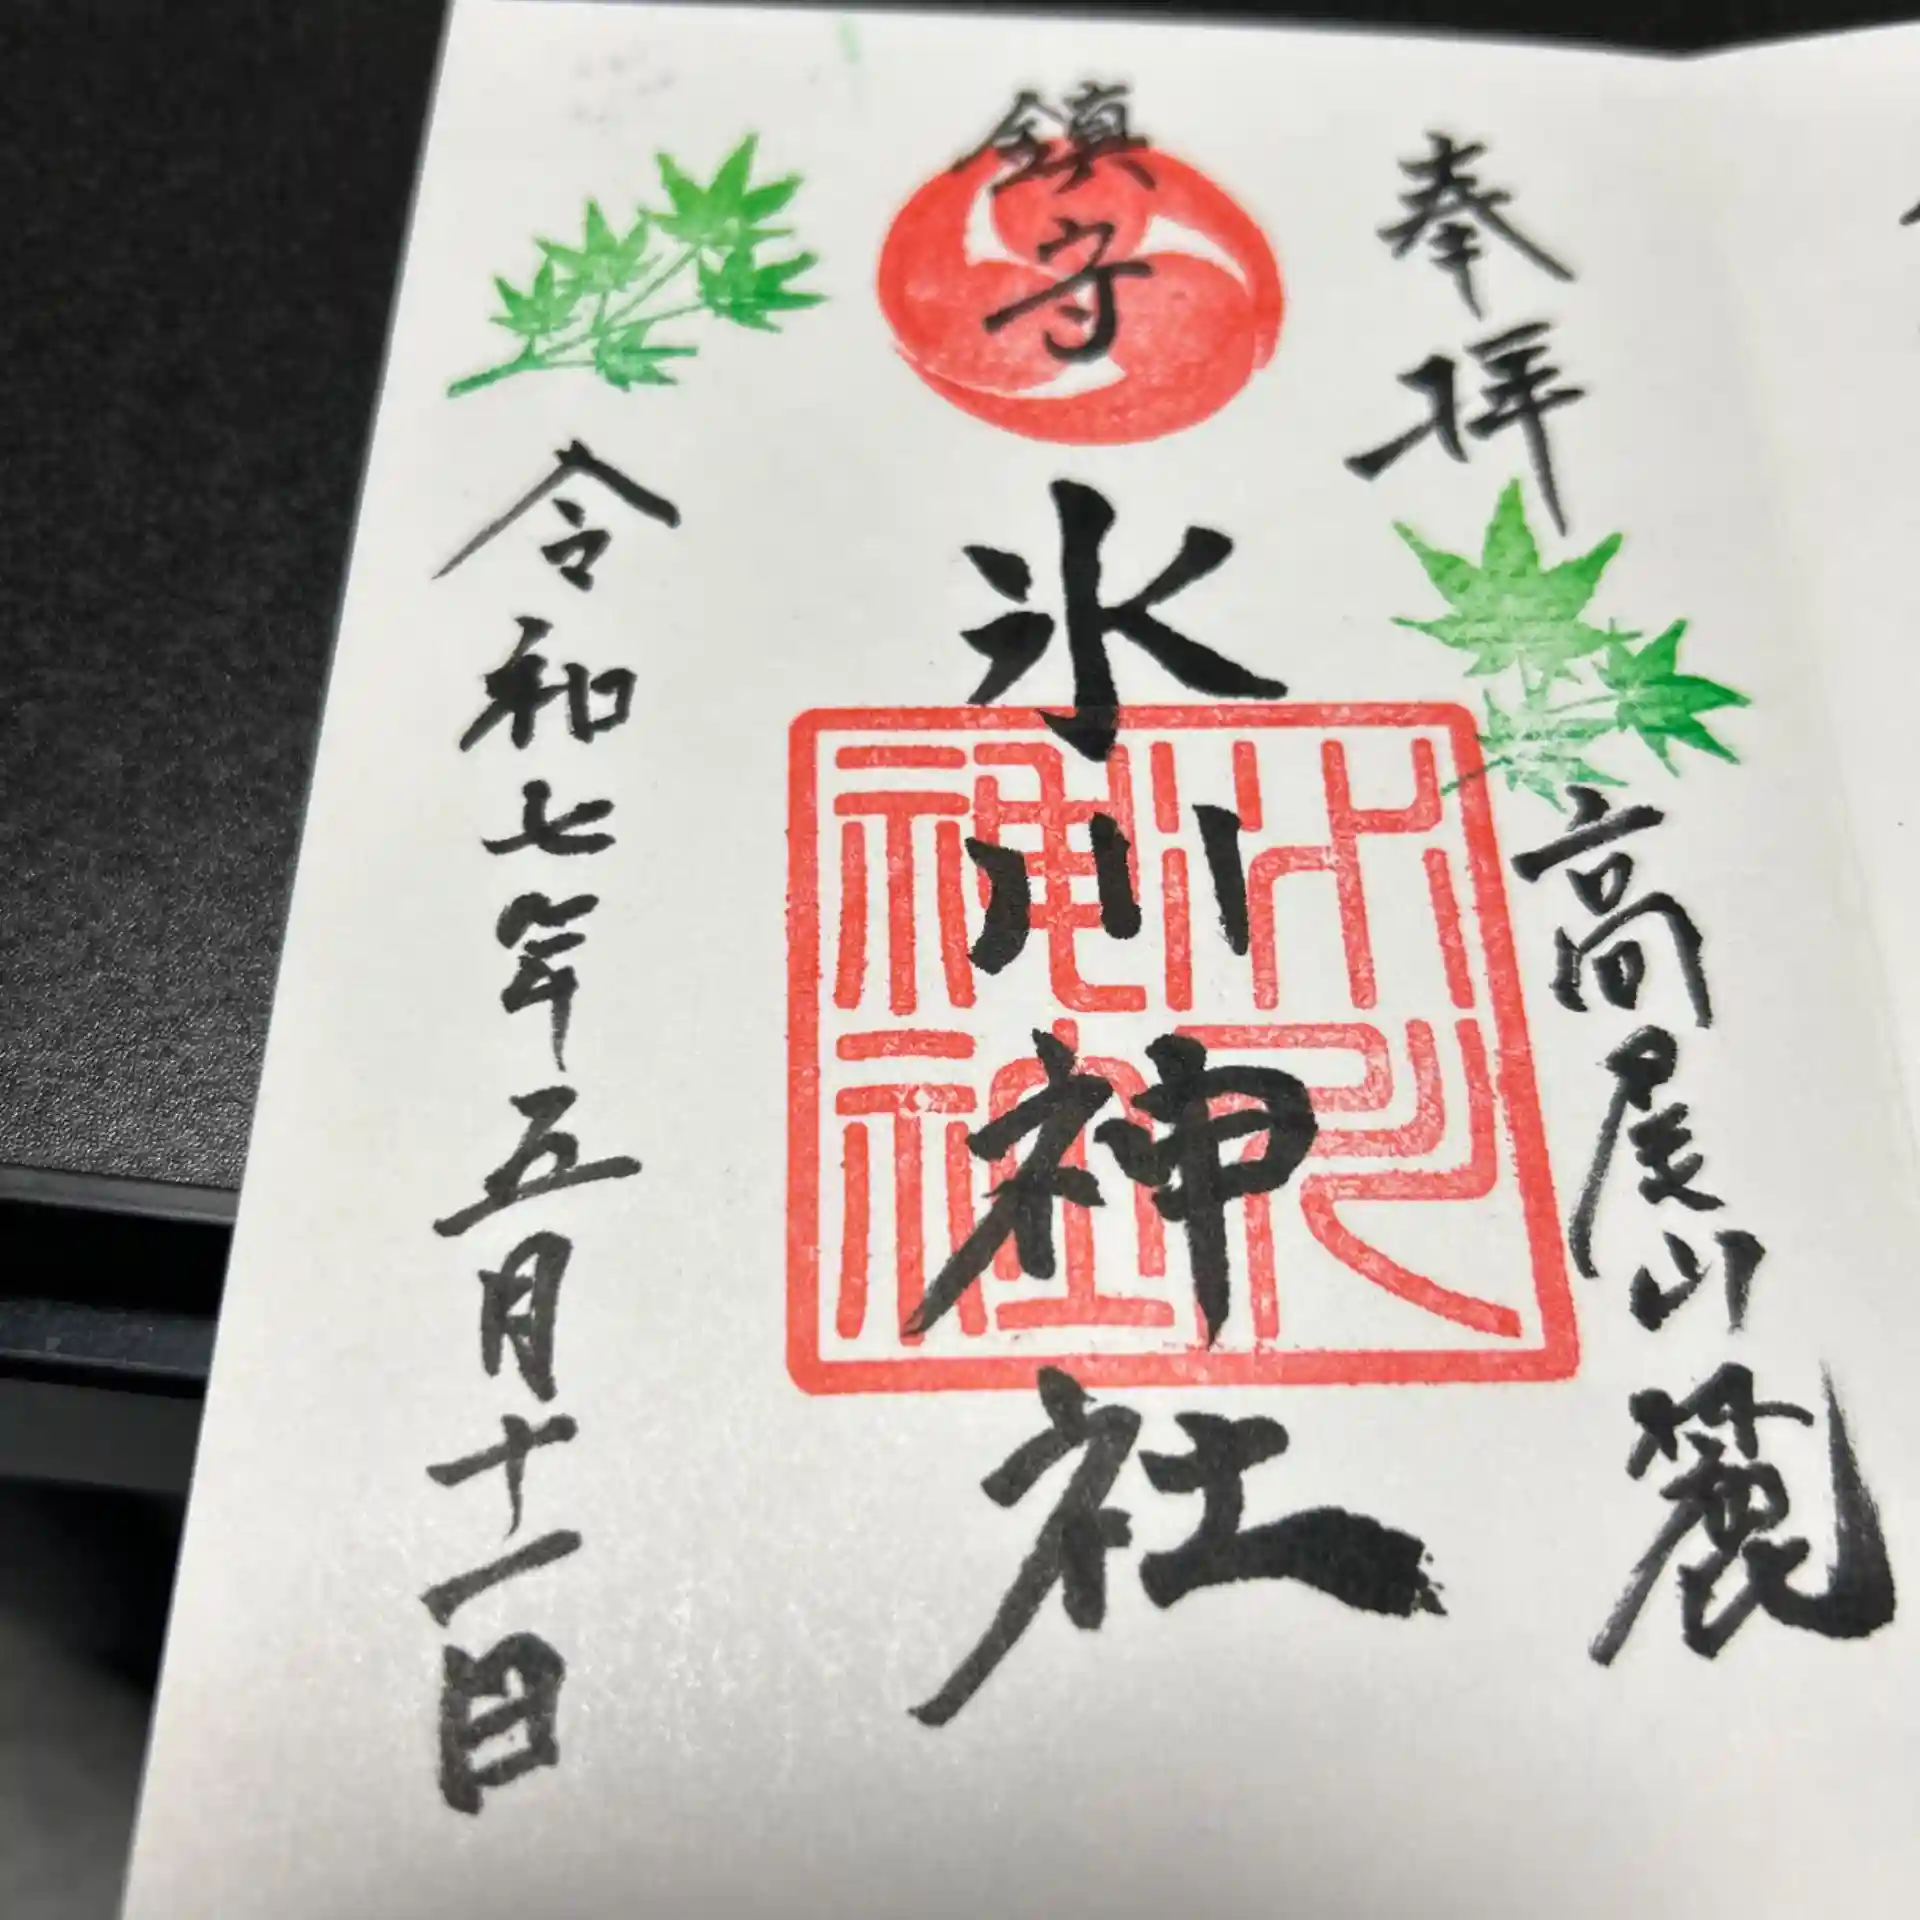 奉拝
高尾山麓
鎮守
氷川神社
氷川神社
令和七年五月十一日